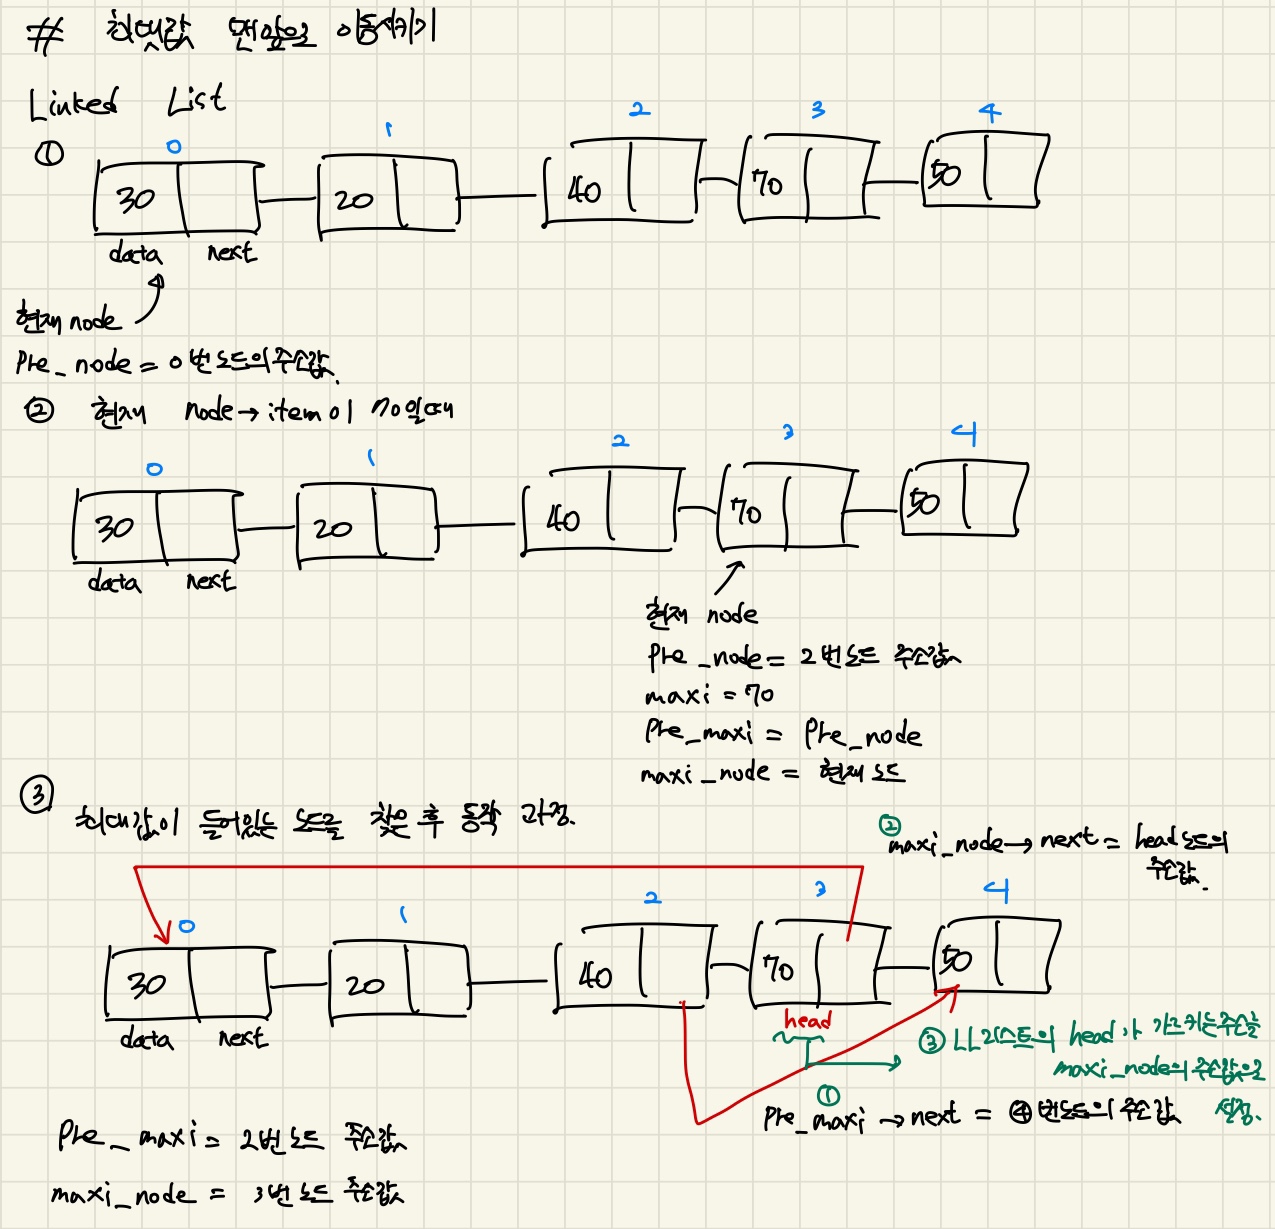 # 최댓값 맨앞으로 이동시키기
Linked List
① 0 1 2 3 4
30 20 40 70 50
data next
현재 node
Pre_node = 0번 노드의 주소값.
② 현재 node → item이 70일때
0 1 2 3 4
30 20 40 70 50
data next
현재 node
Pre_node = 2번노드 주소값
maxi = 70
Pre_maxi = Pre_node
maxi_node = 현재 노드
③ 최대값이 들어있는 노드를 찾은 후 동작 과정.
② maxi_node → next = head노드의
주소값.
0 1 2 3 4
30 20 40 70 50
data next
head
③ LL리스트의 head가 가르키는 주소를
maxi_node의 주소값으로
설정.
①
Pre_maxi → next = ④번노드의 주소값
Pre_maxi = 2번 노드 주소값
maxi_node = 3번 노드 주소값